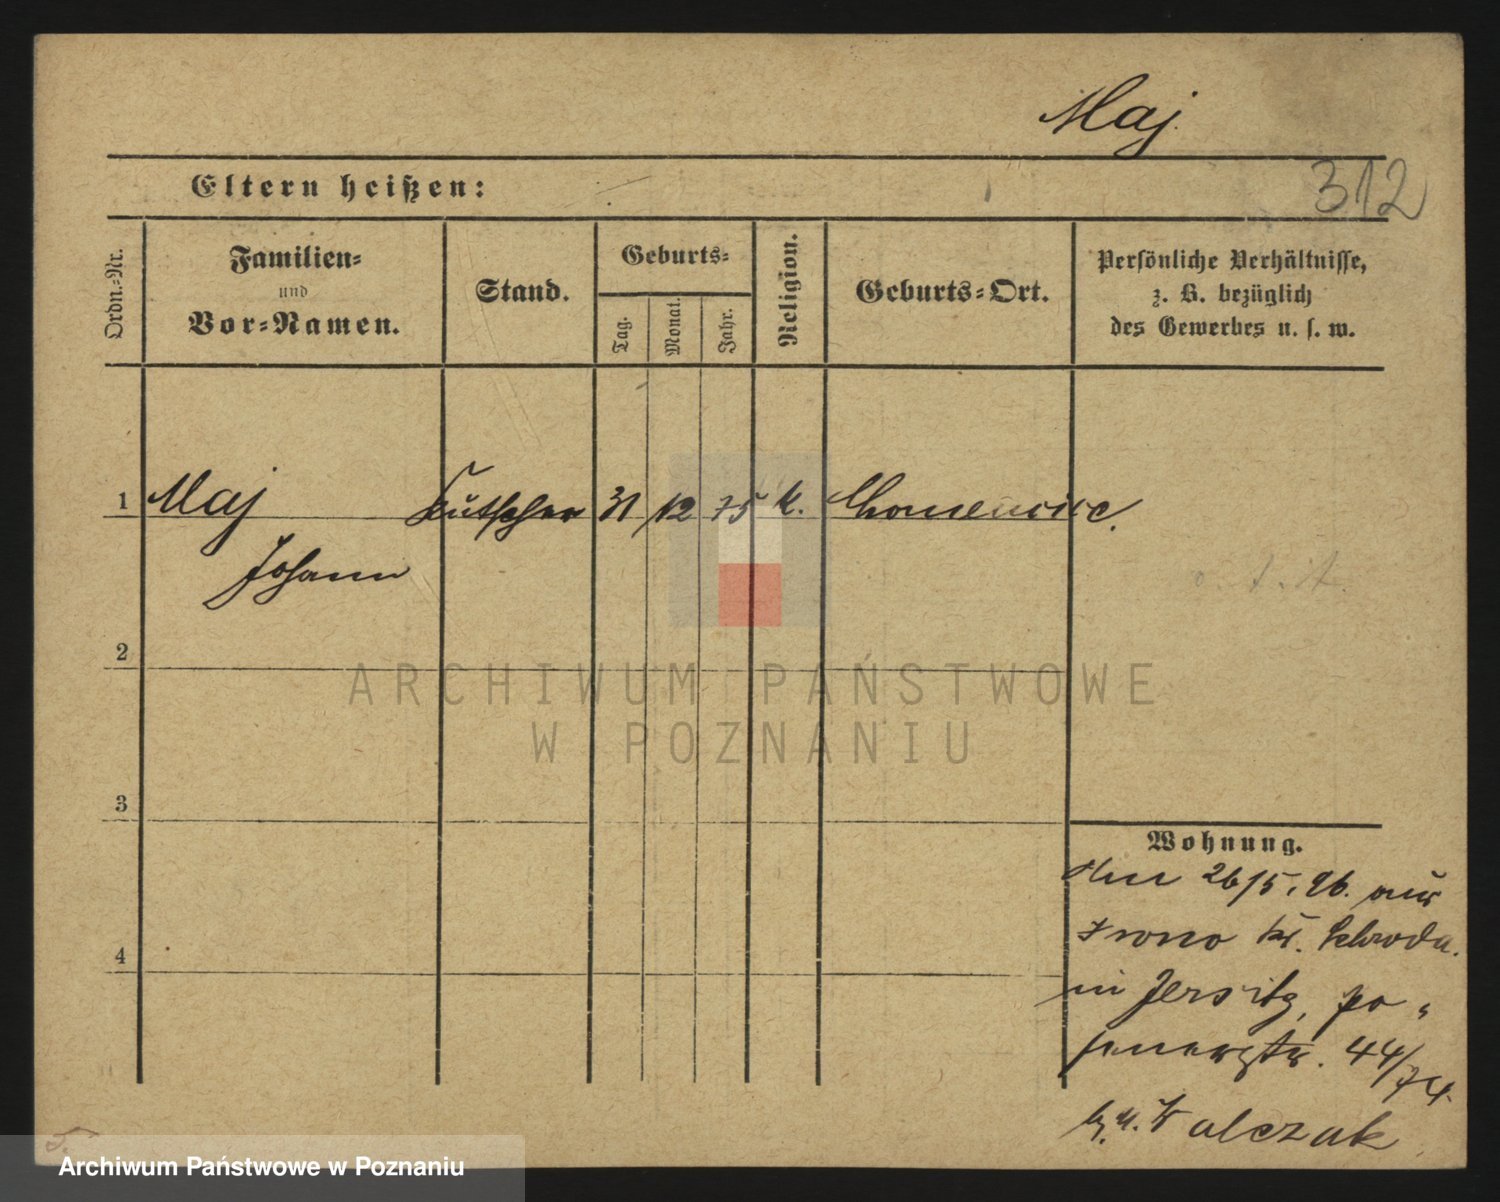 Maj.
312
Eltern heißen:
Ordn.-Nr.
Familien-
und
Vor-Namen.
Stand.
Geburts-
Tag.
Monat.
Jahr.
Religion.
Geburts-Ort.
Persönliche Verhältnisse,
z. B. bezüglich
des Gewerbes u. s. w.
1 Maj Kutscher 31 12 75 k.
Johann
2
3
4
Wohnung.
26/5. 96. aus
Kr. Schroda.
in Jersitz, Po-
senerstr. 44/74
Walczak
ARCHIWUM PAŃSTWOWE
W POZNANIU
Archiwum Państwowe w Poznaniu